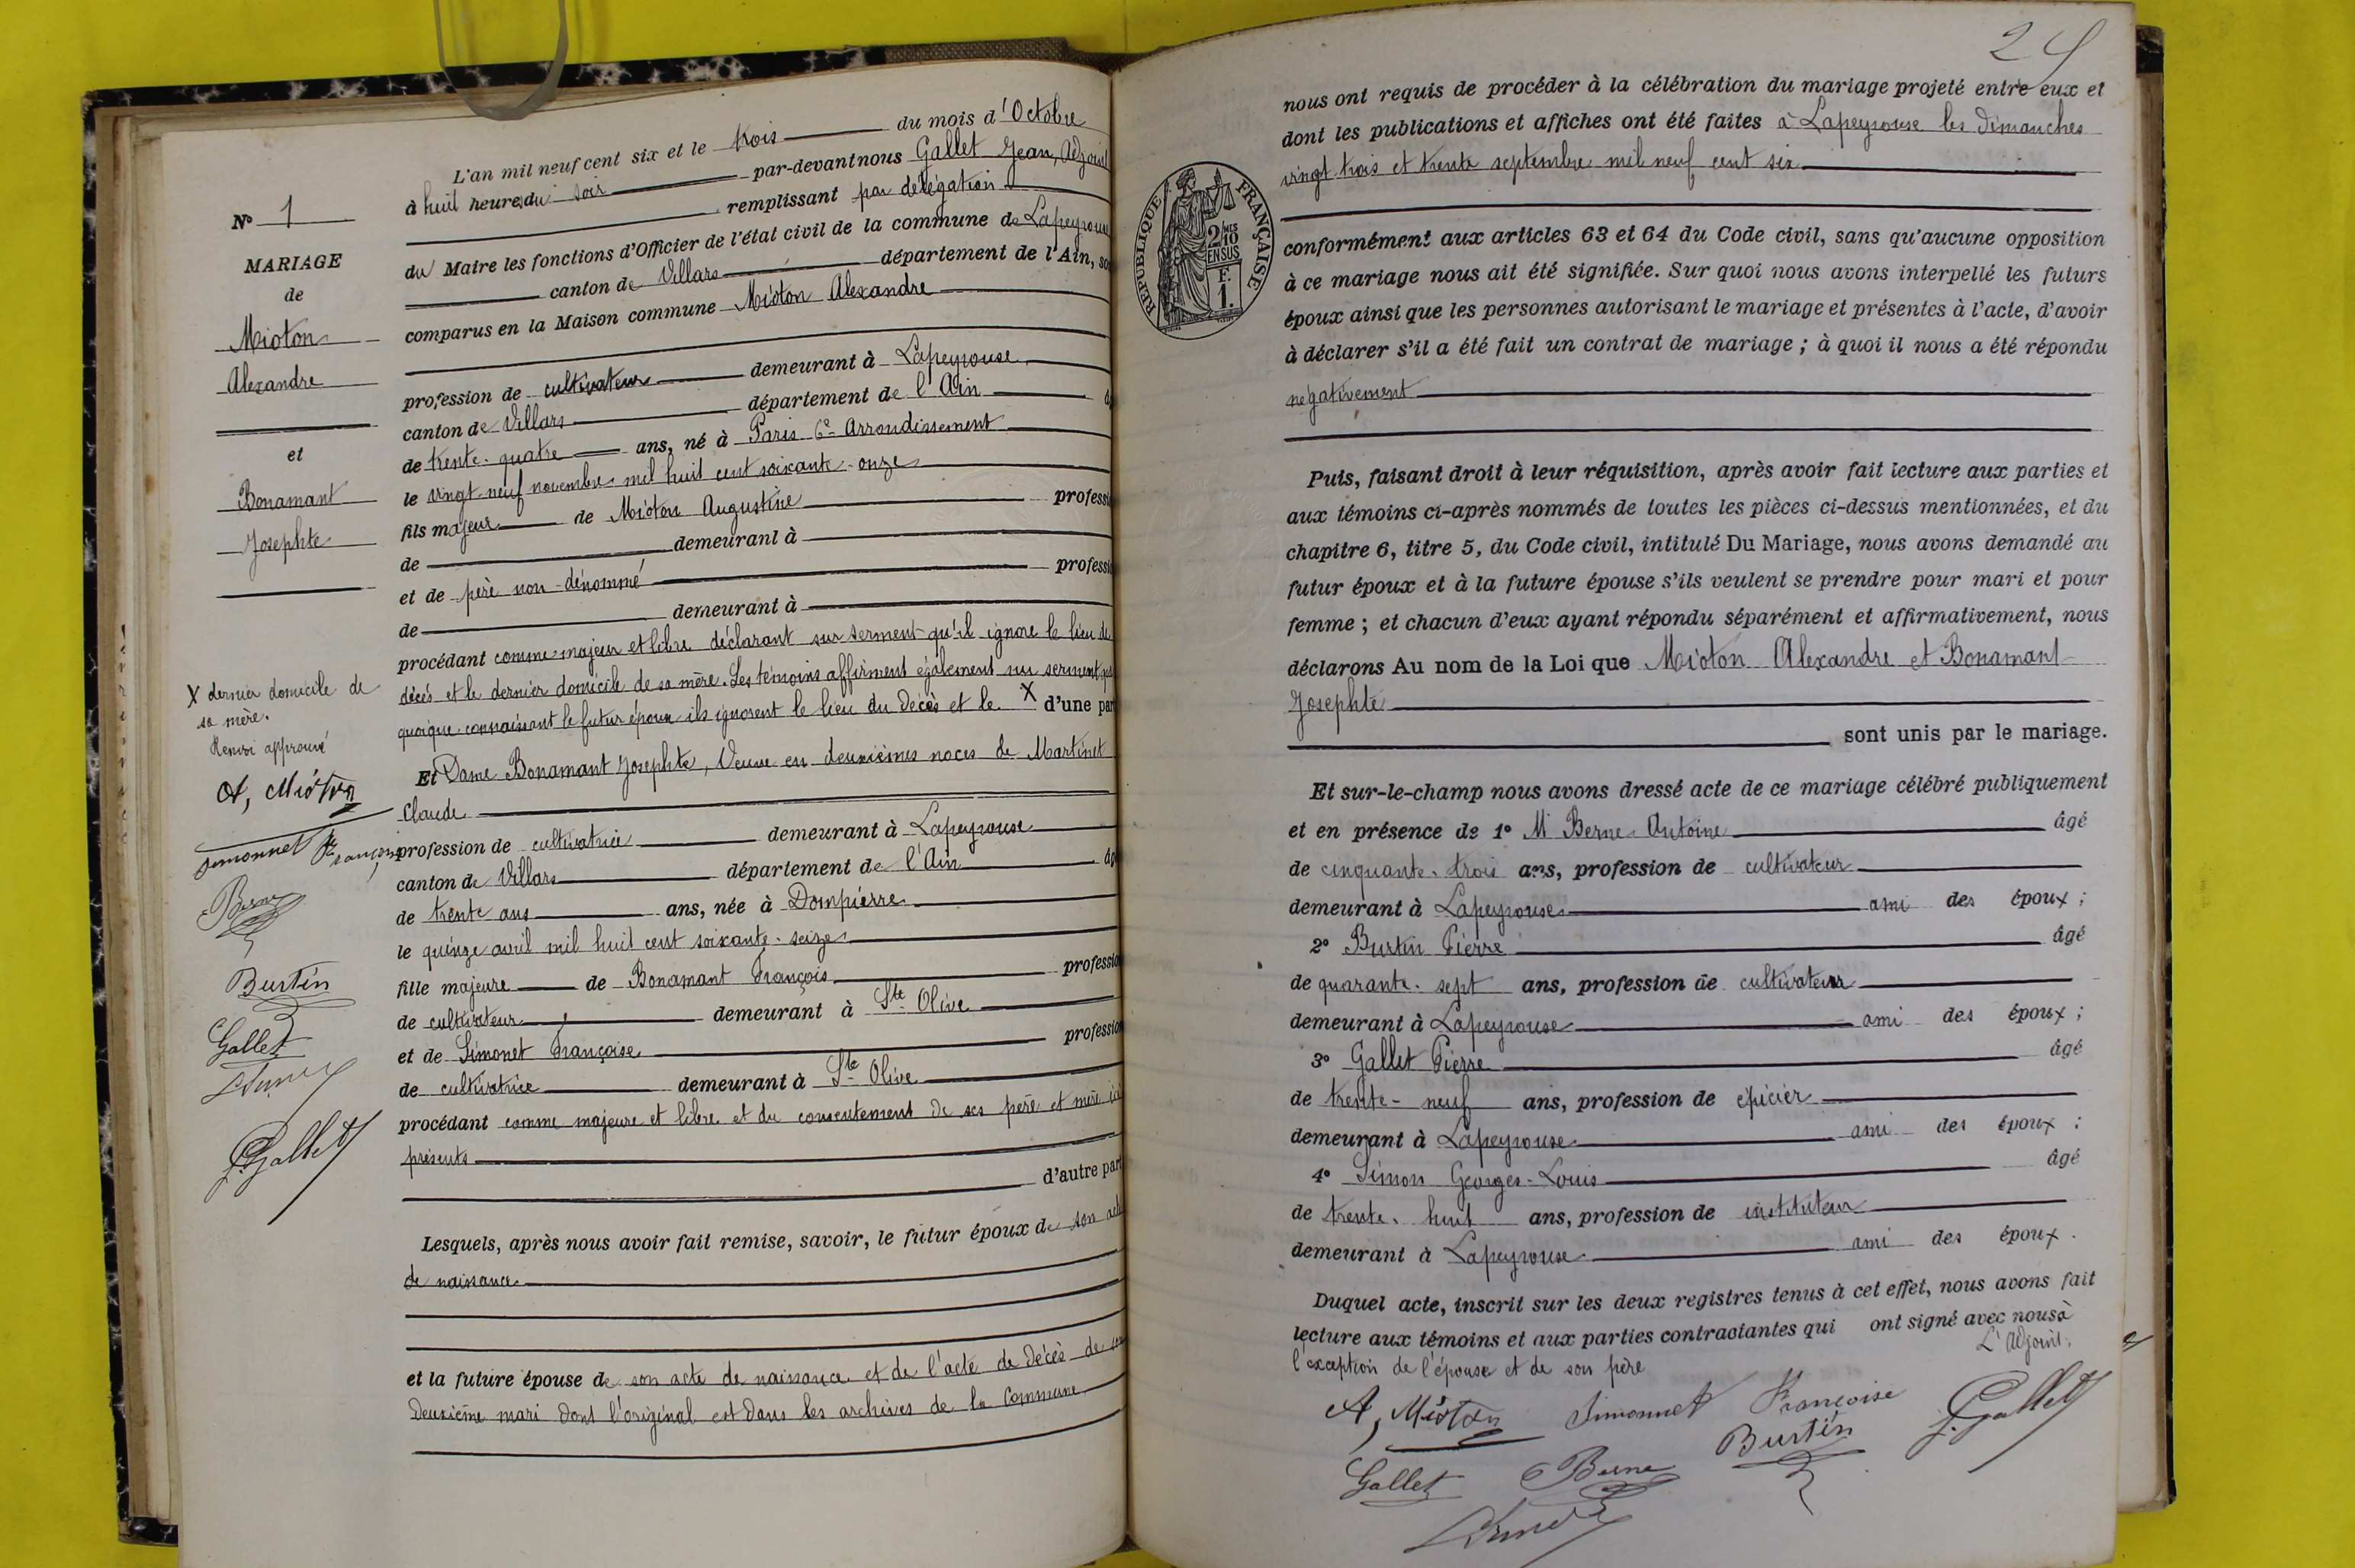 N° 1
MARIAGE
de
Mioton
Alexandre
et
Bonamant
Josephte
X dernier domicile de
sa mère.
Renvoi approuvé
A, Mioton
Simonnet Françoise
Berne
Burtin
Gallet
Simon
J. Gallet
L'an mil neuf cent six et le trois du mois d'Octobre
à huit heures du soir par-devant nous Gallet Jean, Adjoint
remplissant par délégation
du Maire les fonctions d'Officier de l'état civil de la commune de Lapeyrouse
canton de Villars département de l'Ain, so
comparus en la Maison commune Mioton Alexandre
profession de cultivateur demeurant à Lapeyrouse
canton de Villars département de l'Ain
de trente-quatre ans, né à Paris 6e Arrondissement
le vingt-neuf novembre mil huit cent soixante-onze
fils majeur de Mioton Augustine professi
de demeurant à
et de père non-dénommé professi
de demeurant à
procédant comme majeur et libre déclarant sur serment qu'il ignore le lieu de
décès et le dernier domicile de sa mère. Les témoins affirment également sur serment que
quoique connaissant le futur époux ils ignorent le lieu du décès et le X d'une par
Et Dame Bonamant Josephte, Veuve en deuxièmes noces de Martinet
Claude
profession de cultivatrice demeurant à Lapeyrouse
canton de Villars département de l'Ain âg
de trente ans ans, née à Dompierre
le quinze avril mil huit cent soixante-seize
fille majeure de Bonamant François professio
de cultivateur demeurant à Ste Olive
et de Simonet Françoise professio
de cultivatrice demeurant à Ste Olive
procédant comme majeure et libre et du consentement de ses père et mère ici
présents
d'autre part
Lesquels, après nous avoir fait remise, savoir, le futur époux de son acte
de naissance
et la future épouse de son acte de naissance et de l'acte de décès de son
deuxième mari dont l'original est dans les archives de la Commune
24
REPUBLIQUE FRANÇAISE
2/10 MES
EN SUS
F.
1.
nous ont requis de procéder à la célébration du mariage projeté entre eux et
dont les publications et affiches ont été faites à Lapeyrouse les dimanches
vingt-trois et trente septembre mil neuf cent six
conformément aux articles 63 et 64 du Code civil, sans qu'aucune opposition
à ce mariage nous ait été signifiée. Sur quoi nous avons interpellé les futurs
époux ainsi que les personnes autorisant le mariage et présentes à l'acte, d'avoir
à déclarer s'il a été fait un contrat de mariage ; à quoi il nous a été répondu
négativement
Puis, faisant droit à leur réquisition, après avoir fait lecture aux parties et
aux témoins ci-après nommés de toutes les pièces ci-dessus mentionnées, et du
chapitre 6, titre 5, du Code civil, intitulé Du Mariage, nous avons demandé au
futur époux et à la future épouse s'ils veulent se prendre pour mari et pour
femme ; et chacun d'eux ayant répondu séparément et affirmativement, nous
déclarons Au nom de la Loi que Mioton Alexandre et Bonamant
Josephte
sont unis par le mariage.
Et sur-le-champ nous avons dressé acte de ce mariage célébré publiquement
et en présence de 1° M Berne Antoine âgé
de cinquante-trois ans, profession de cultivateur
demeurant à Lapeyrouse ami des époux ;
2° Burtin Pierre âgé
de quarante-sept ans, profession de cultivateur
demeurant à Lapeyrouse ami des époux ;
3° Gallet Pierre âgé
de trente-neuf ans, profession de épicier
demeurant à Lapeyrouse ami des époux ;
4° Simon Georges-Louis âgé
de trente-huit ans, profession de instituteur
demeurant à Lapeyrouse ami des époux.
Duquel acte, inscrit sur les deux registres tenus à cet effet, nous avons fait
lecture aux témoins et aux parties contractantes qui ont signé avec nous à
l'exception de l'épouse et de son père
L'Adjoint.
A, Mioton Simonnet Françoise J. Gallet
Gallet Berne Burtin
Simon